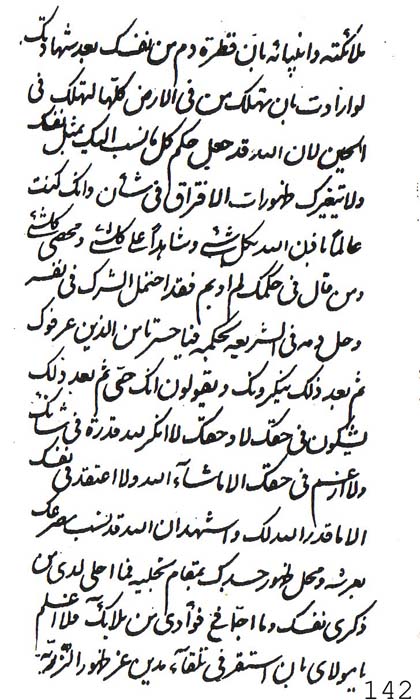 ملائكته وانبيائه بان قطرة دم من نفسك بعد شهادتك
لو ارادت بان تهلك من في الارض كلها لتهلك في
الحين لان الله قد جعل حكم كل ما نسب اليك بمثل نفسك
ولا تغيرك ظهورات الافراق في شأن وانك كنت
عالماً باذن الله بكل شئ وشاهداً على كل شئ ومحصي كل شئ
ومن قال في حكمك لم او بم فقد احتمل الشرك في نفسه
وحل دمه في الشريعه بحكمه فيا حسرتا من الذين عرفوك
ثم بعد ذلك ينكرونك ويقولون انك حق ثم بعد ذلك
يشكون في حقك لا وحقك لا انكر لله قدرة في شأنك
ولا ارى في حقك الا ما شاء الله ولا اعتقد في نفسك
الا ما قدر الله لك واشهد ان الله قد نسب مصرعك
بعرشه ومحل ظهور جسدك بمقام تجليه فما احلى لدى من
ذكرى نفسك وما اجا في فؤادي من بلائك فلا اعلم
يا مولاي بان استقر في تلقاء مدين عز ظهور الربوبية
142